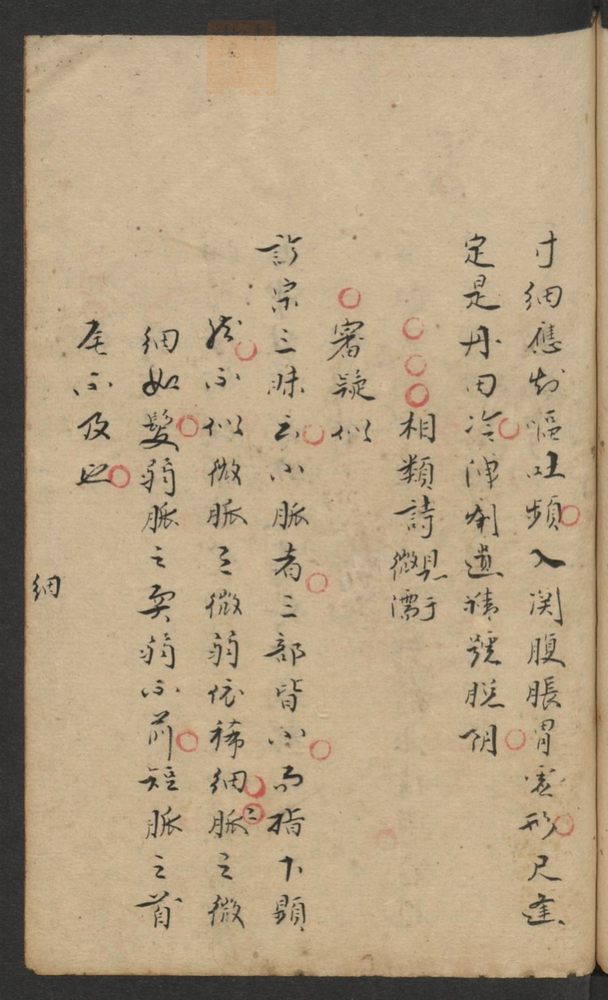 寸細應知嘔吐頻入関腹脹胃虛形尺逢
定是丹田冷洩痢遺精號脫阴
相類詩見于微濡
審疑似
診宗三昧云小脈者三部皆小而指下顯
然不似微脈之微弱依稀細脈之微
細如髮弱脈之耎弱不前短脈之首
尾不及也
細